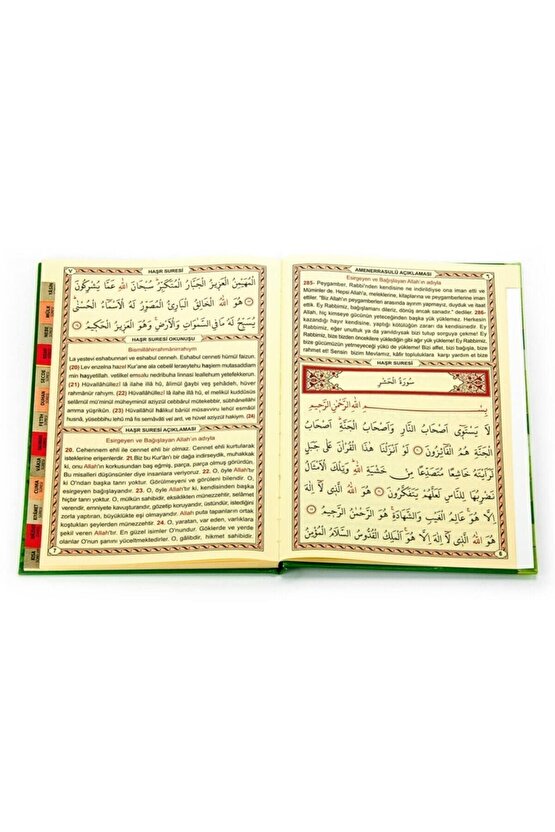 AMENERRASULÜ AÇIKLAMASI
٦
Esirgeyen ve Bağışlayan Allah'ın adıyla
285- Peygamber, Rabbi'nden kendisine ne indirildiyse ona iman etti ve
Müminler de. Hepsi Allah'a, meleklerine, kitaplarına ve peygamberlerine iman
ettiler. "Biz Allah'ın peygamberleri arasında ayırım yapmayız, duyduk ve itaat
ettik. Ey Rabbimiz, bağışlamanı dileriz, dönüş ancak sanadır." dediler. 286-
Allah, hiç kimseye gücünün yeteceğinden başka yük yüklemez. Herkesin
kazandığı hayır kendisine, yaptığı kötülüğün zararı da kendisinedir. Ey
Rabbimiz, eğer unuttuk ya da yanıldıysak bizi tutup sorguya çekme! Ey
Rabbimiz, bize bizden öncekilere yüklediğin gibi ağır yük yükleme! Ey Rabbimiz,
bize gücümüzün yetmeyeceği yükü de yükleme! Bizi affet, bizi bağışla, bize
rahmet et! Sensin bizim Mevlamız, kâfir topluluklara karşı yardım et bize
HAŞR SURESİ
سُورَةُ الْحَشْرِ
بِسْمِ اللهِ الرَّحْمٰنِ الرَّحِيمِ
لَا يَسْتَوِى اَصْحَابُ النَّارِ وَاَصْحَابُ الْجَنَّةِ اَصْحَابُ
الْجَنَّةِ هُمُ الْفَائِزُونَ لَوْ اَنْزَلْنَا هٰذَا الْقُرْاٰنَ عَلٰى جَبَلٍ
لَرَاَيْتَهُ خَاشِعًا مُتَصَدِّعًا مِنْ خَشْيَةِ اللهِ وَتِلْكَ الْاَمْثَالُ
نَضْرِبُهَا لِلنَّاسِ لَعَلَّهُمْ يَتَفَكَّرُونَ هُوَ اللهُ الَّذِى لَا اِلٰهَ
اِلَّا هُوَ عَالِمُ الْغَيْبِ وَالشَّهَادَةِ هُوَ الرَّحْمٰنُ الرَّحِيمُ
هُوَ اللهُ الَّذِى لَا اِلٰهَ اِلَّا هُوَ اَلْمَلِكُ الْقُدُّوسُ السَّلَامُ الْمُؤْمِنُ
6
٧
HAŞR SURESİ
الْمُهَيْمِنُ الْعَزِيزُ الْجَبَّارُ الْمُتَكَبِّرُ سُبْحَانَ اللهِ عَمَّا يُشْرِكُونَ
هُوَ اللهُ الْخَالِقُ الْبَارِئُ الْمُصَوِّرُ لَهُ الْاَسْمَاءُ الْحُسْنٰى
يُسَبِّحُ لَهُ مَا فِى السَّمٰوَاتِ وَالْاَرْضِ وَهُوَ الْعَزِيزُ الْحَكِيمُ
HAŞR SURESİ OKUNUŞU
Bismillâhirrahmânirrahıym
La yestevi eshabunnari ve eshabul cenneti. Eshabul cenneti hümül faizun.
(20) Lev enzelna hazel Kur'ane ala cebelil leraeytehu haşiem mutasaddiam
min haşyetillah. vetilkel emsalu nedribuha linnasi leallehum yetefekkerun.
(21) Hüvallâhüllezî lâ ilahe illâ hû, âlimül ğaybi veş şehâdeh, hüver
rahmânür rahıym. (22) Hüvallâhüllezî lâ ilâhe illâ hû, el melikül kuddûsüs
selâmül mü'minül müheyminül aziyzül cebbârul mütekebbir, sübhânellâhi
amma yüşrikûn. (23) Hüvallâhül hâlikul bâriül müsavviru lehül esmâül
husnâ, yüsebbihu lehû mâ fis semâvâti vel ard, ve hüvel aziyzül hakiym. (24)
HAŞR SURESİ AÇIKLAMASI
Esirgeyen ve Bağışlayan Allah'ın adıyla
20. Cehennem ehli ile cennet ehli bir olmaz. Cennet ehli kurtularak
isteklerine erişenlerdir. 21. Biz bu Kur'ân'ı bir dağa indirseydik, muhakkak
ki, onu Allah'ın korkusundan baş eğmiş, parça, parça olmuş görürdün.
Bu misalleri düşünsünler diye insanlara veriyoruz. 22. O, öyle Allah'tır
ki O'ndan başka tanrı yoktur. Görülmeyeni ve görüleni bilendir. O,
esirgeyen bağışlayandır. 23. O, öyle Allah'tır ki, kendisinden başka
hiçbir tanrı yoktur. O, mülkün sahibidir, eksiklikten münezzehtir, selâmet
verendir, emniyete kavuşturandır, gözetip koruyandır, üstündür, istediğini
zorla yaptıran, büyüklükte eşi olmayandır. Allah puta tapanların ortak
koştukları şeylerden münezzehtir. 24. O, yaratan, var eden, varlıklara
şekil veren Allah'tır. En güzel isimler O'nundur. Göklerde ve yerde
olanlar O'nun şanını yüceltmektedirler. O, gâlibdir, hikmet sahibidir.
7
YASİN
MÜLK
NEBE
SECDE
DUHAN
FETİH
VAKIA
CUMA
KIYAMET